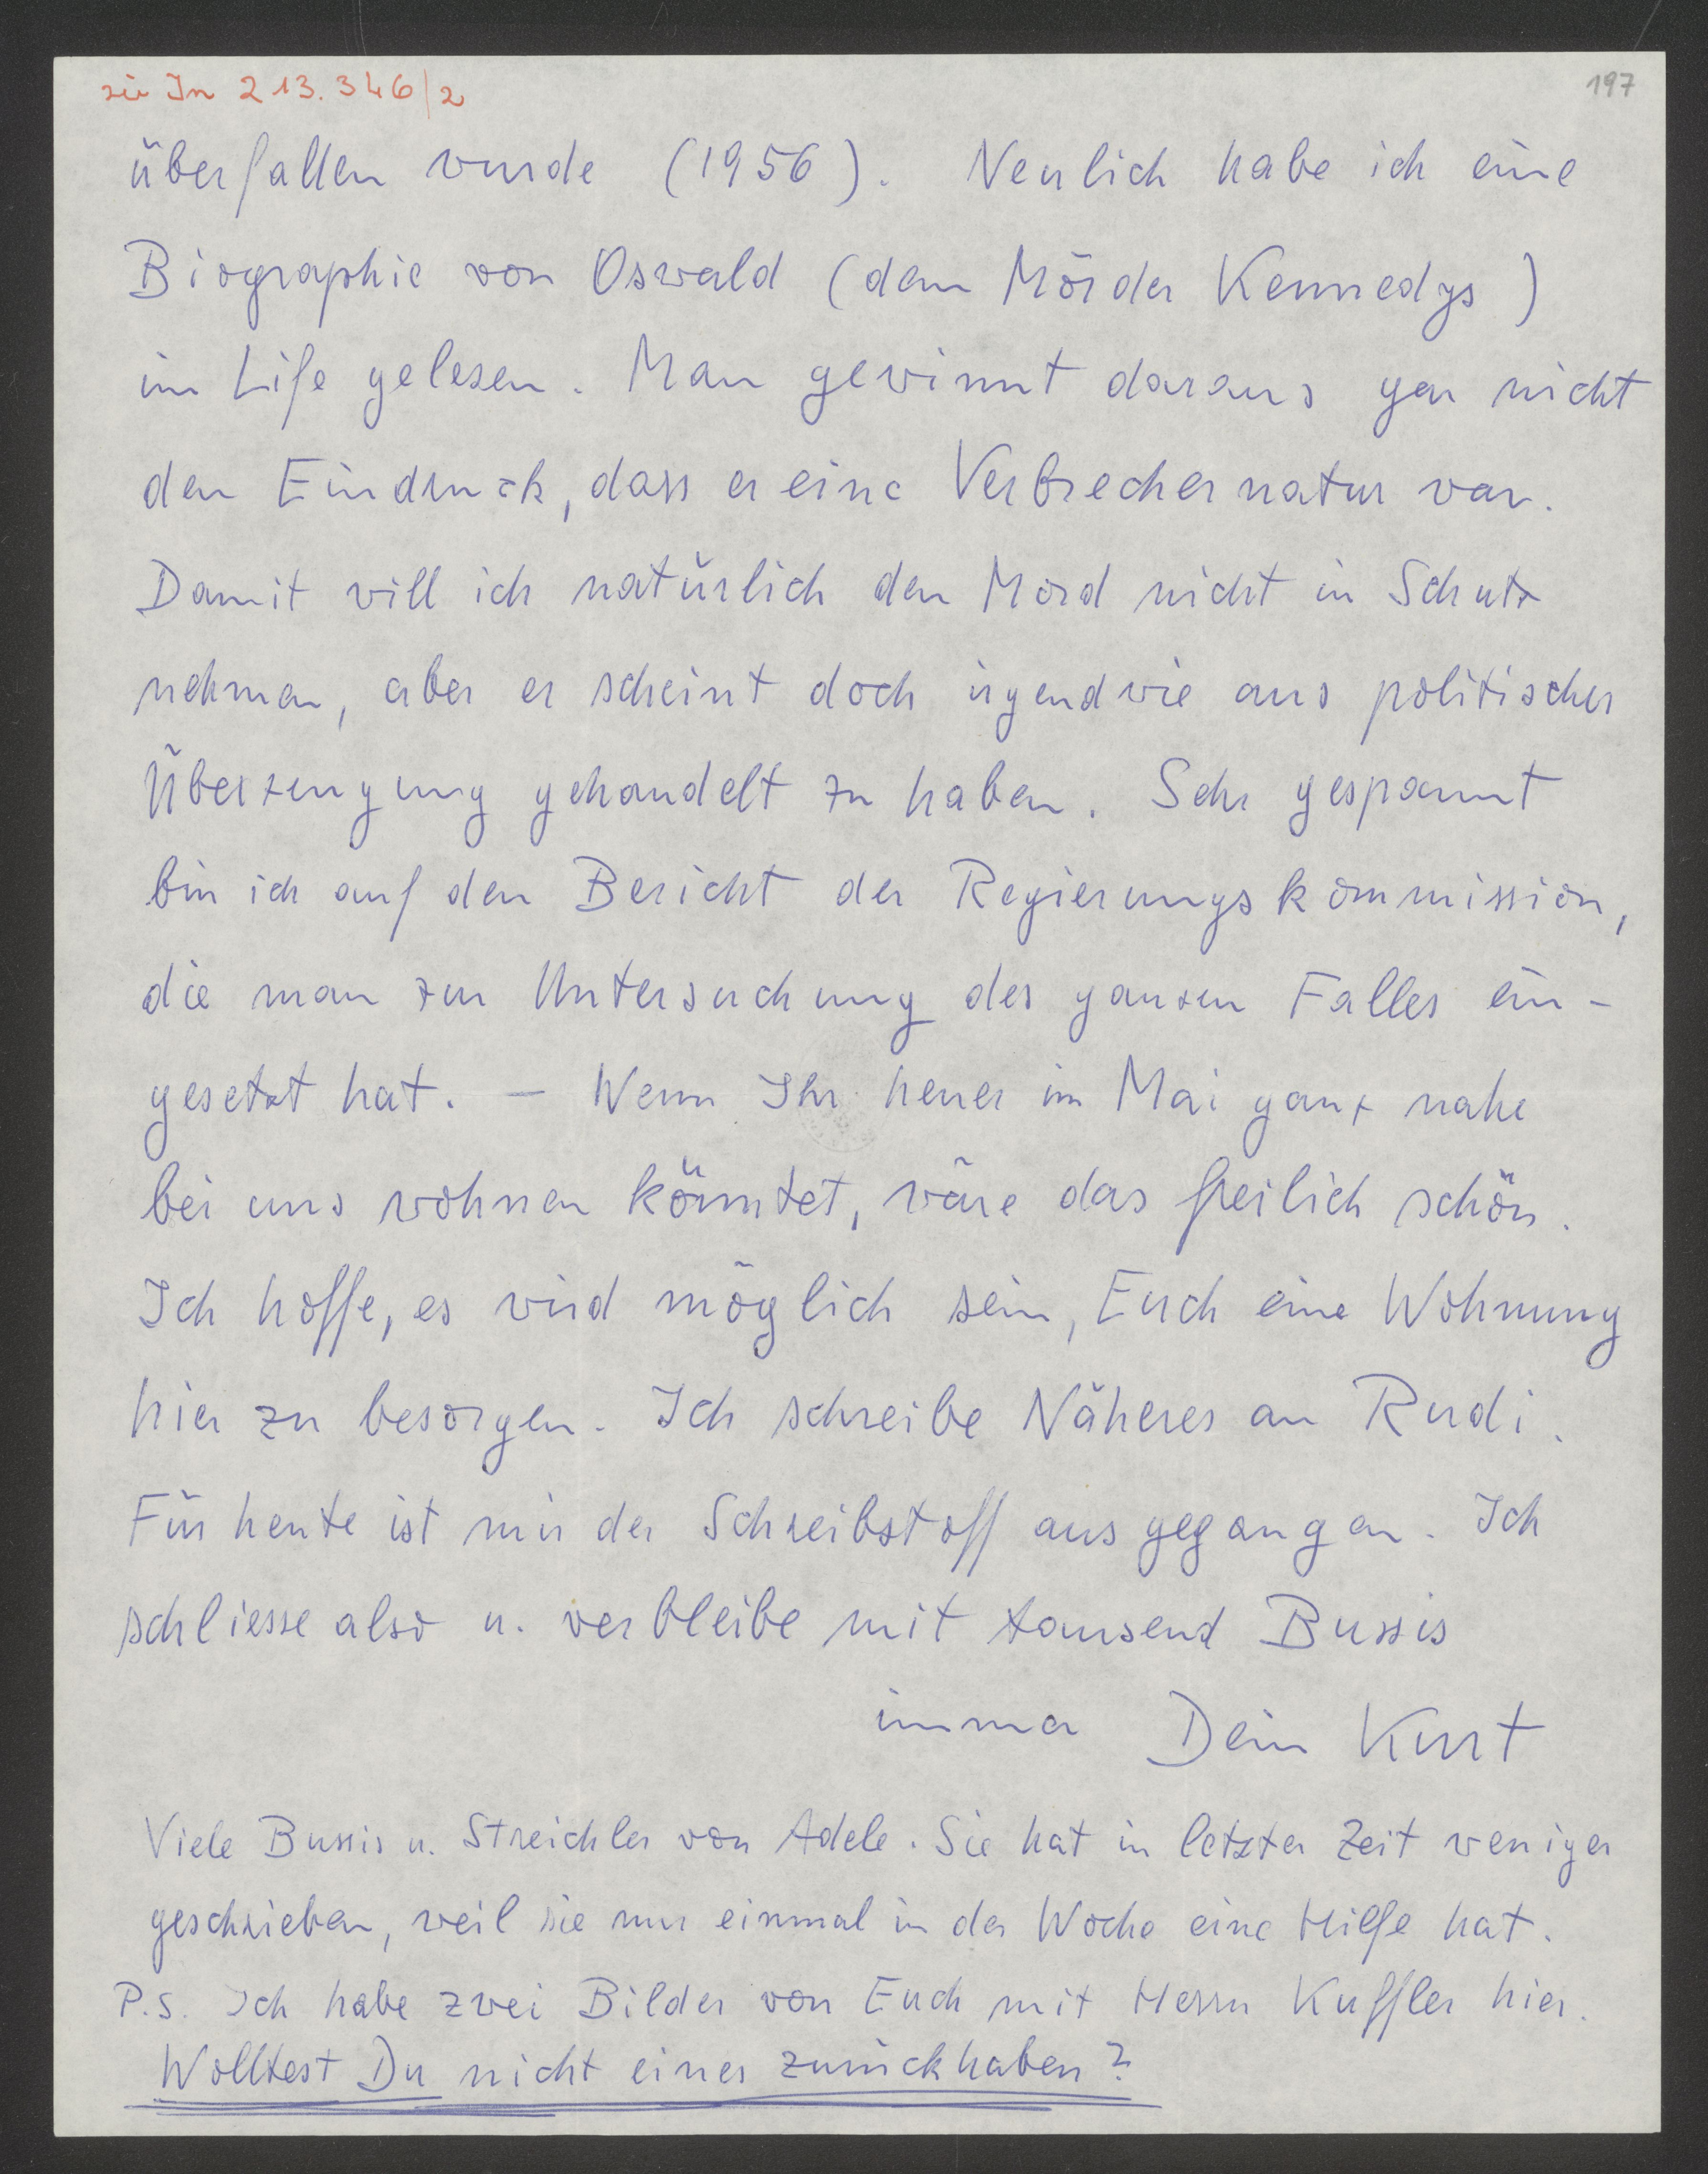 zu In 213.346/2
197
überfallen wurde (1956). Neulich habe ich eine
Biographie von Oswald (dem Mörder Kennedys)
im Life gelesen. Man gewinnt daraus gar nicht
den Eindruck, dass er eine Verbrechernatur war.
Damit will ich natürlich den Mord nicht in Schutz
nehmen, aber er scheint doch irgendwie aus politischer
Überzeugung gehandelt zu haben. Sehr gespannt
bin ich auf den Bericht der Regierungskommission,
die man zur Untersuchung des ganzen Falles ein-
gesetzt hat. – Wenn Ihr heuer im Mai ganz nahe
bei uns wohnen könntet, wäre das freilich schön.
Ich hoffe, es wird möglich sein, Euch eine Wohnung
hier zu besorgen. Ich schreibe Näheres an Rudi.
Für heute ist mir der Schreibstoff ausgegangen. Ich
schliesse also u. verbleibe mit tausend Bussis
immer Dein Kurt
Viele Bussis u. Streichler von Adele. Sie hat in letzter Zeit weniger
geschrieben, weil sie nur einmal in der Woche eine Hilfe hat.
P.S. Ich habe zwei Bilder von Euch mit Herrn Kuffler hier.
Wolltest Du nicht eines zurückhaben?